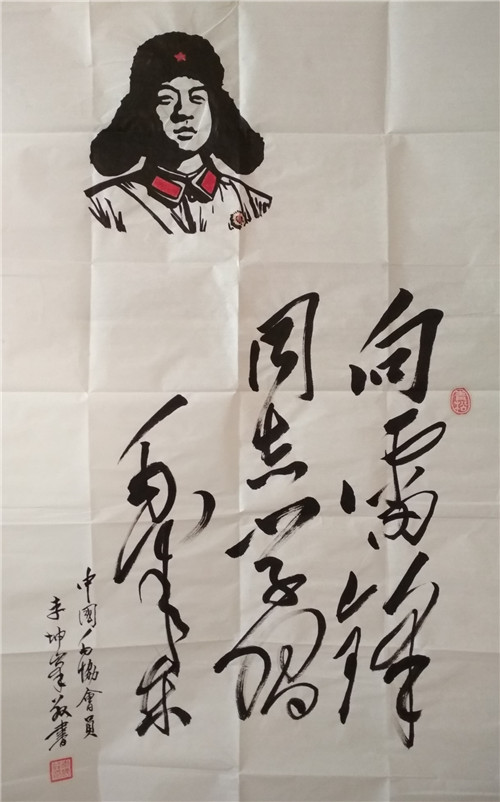 向雷锋
同志学习
毛泽东
中国书协會員
李坤峯敬書